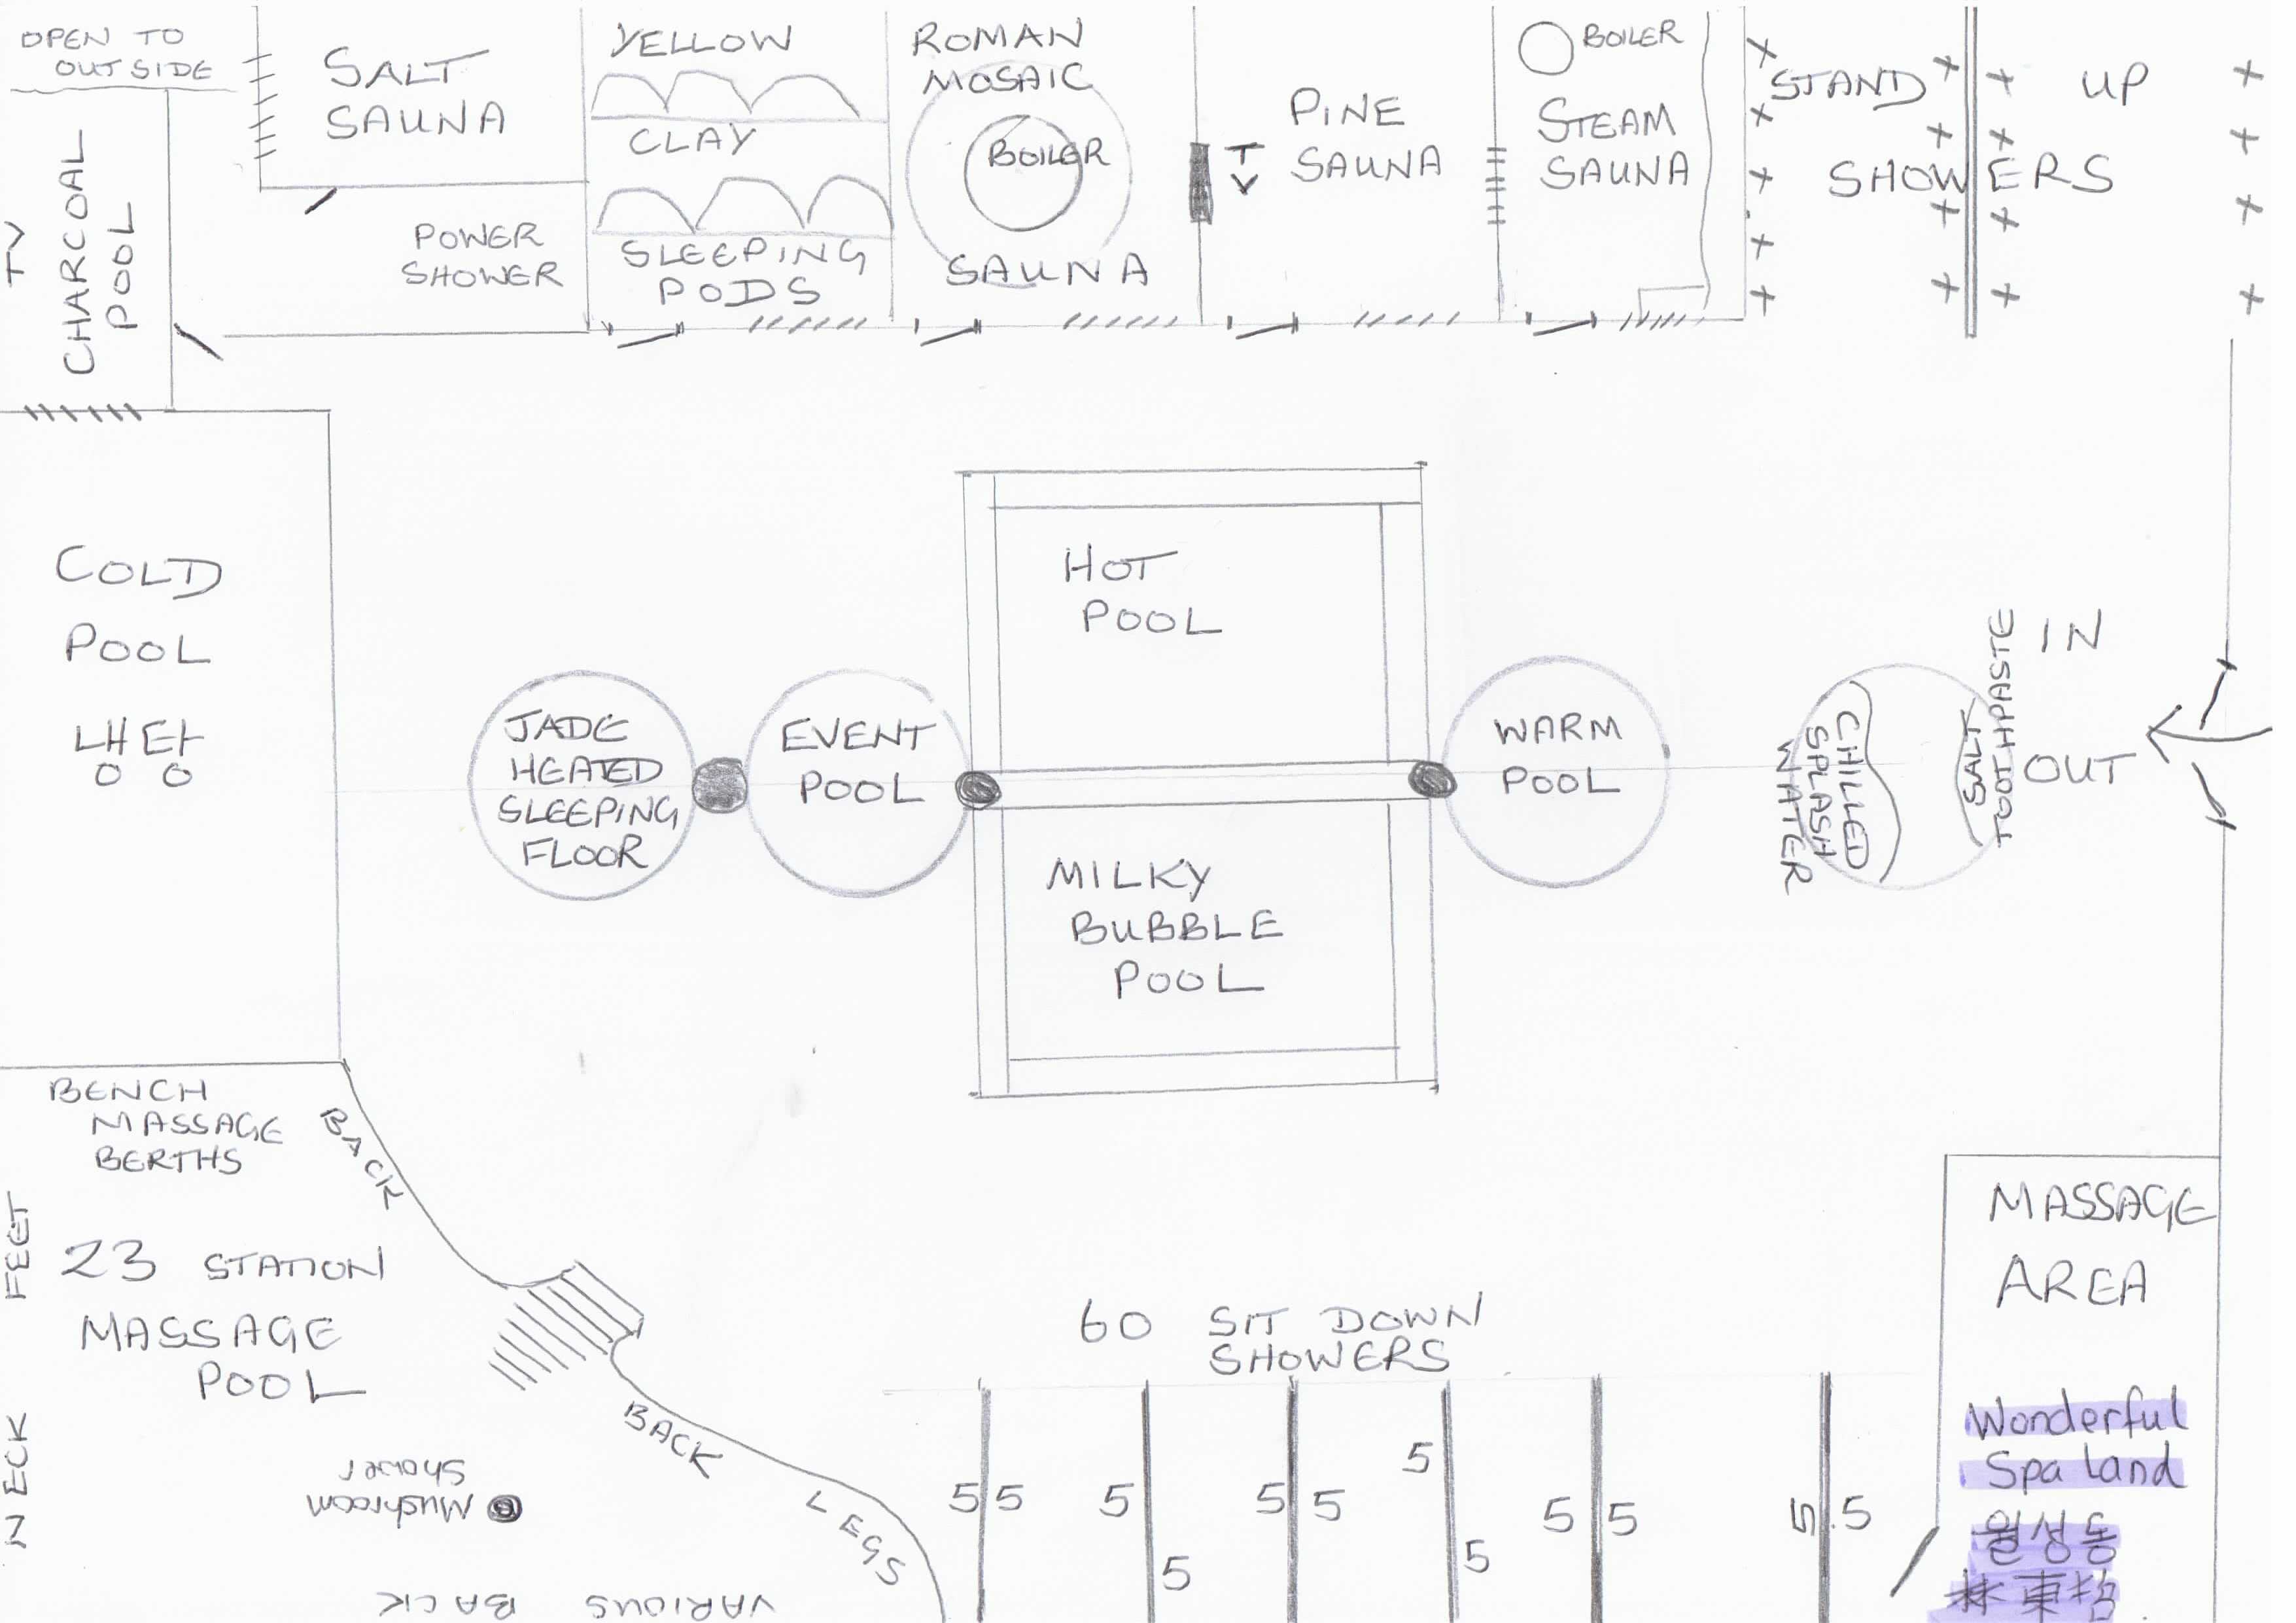 OPEN TO
OUT SIDE
SALT
SAUNA
YELLOW
CLAY
SLEEPING
PODS
ROMAN
MOSAIC
BOILER
SAUNA
TV
PINE
SAUNA
BOILER
STEAM
SAUNA
STAND UP
SHOWERS
TV
CHARCOAL
POOL
POWER
SHOWER
COLD
POOL
냉탕
JADE
HEATED
SLEEPING
FLOOR
EVENT
POOL
HOT
POOL
MILKY
BUBBLE
POOL
WARM
POOL
CHILLED
SPLASH
WATER
SALT
TOOTHPASTE
IN
OUT
BENCH
MASSAGE
BERTHS
BACK
FEET
23 STATION
MASSAGE
POOL
NECK
Mushroom
Shower
BACK
LEGS
VARIOUS BACK
60 SIT DOWN
SHOWERS
5 5 5 5 5 5 5 5 5 5 5 5
MASSAGE
AREA
Wonderful
Spa land